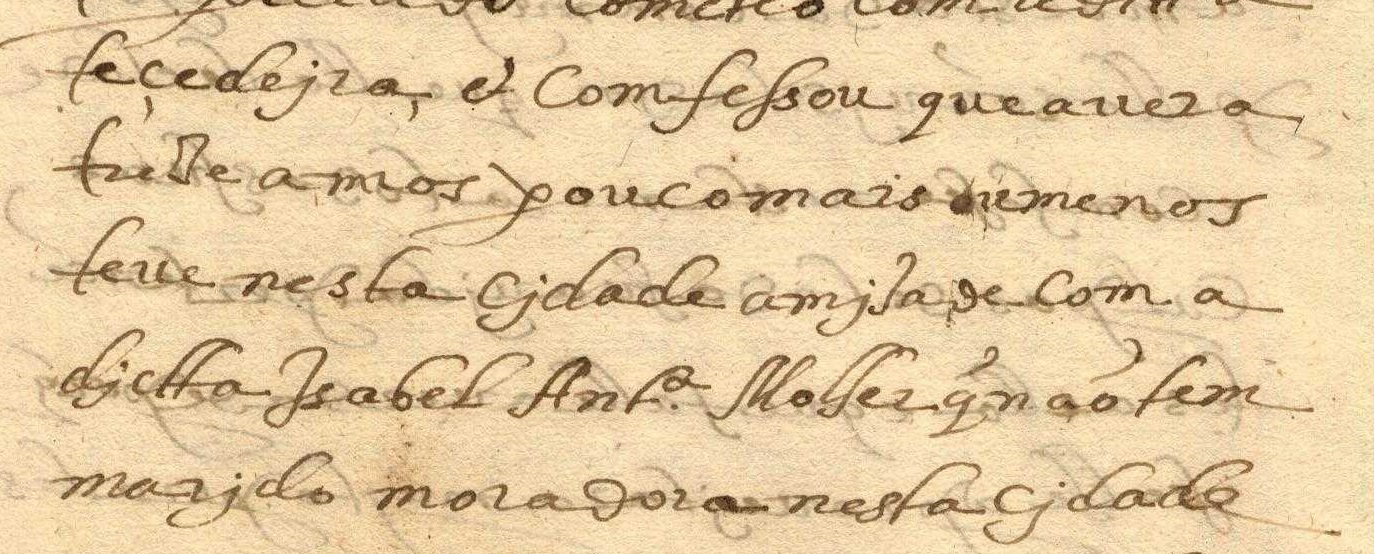 cometeo com
teçedejra, et Comfessou que avera
treze annos pouco mais ou menos
teve nesta Cjdade amjzade com a
djctta Isabel Antª. Molher q̃ não tem
marjdo moradora nesta Cjdade